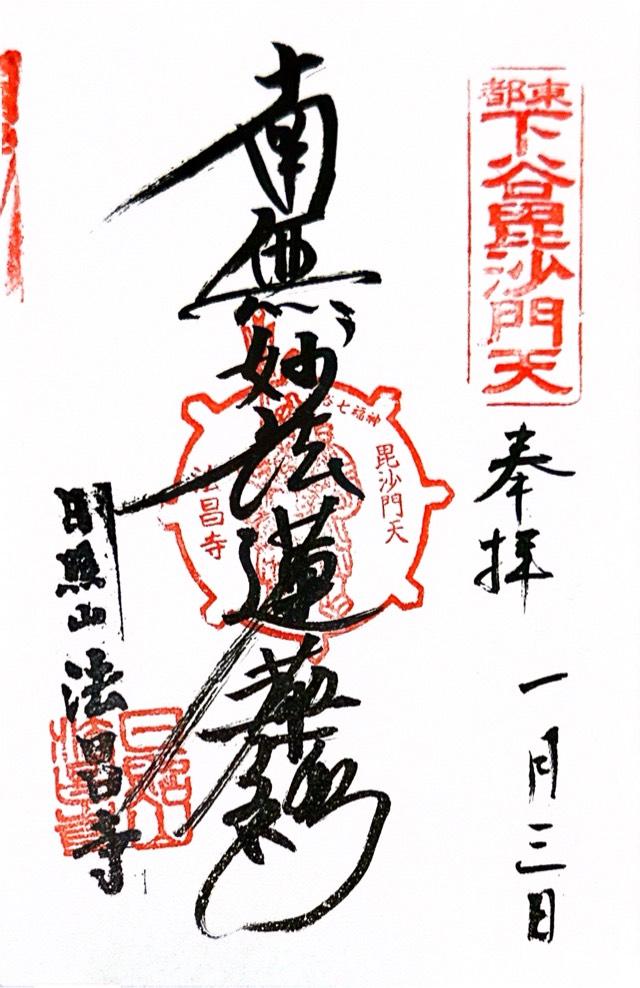 東都
下谷毘沙門天
奉拝 一月三日
南無妙法蓮華経
七福神
毘沙門天
法昌寺
日照山
法昌寺